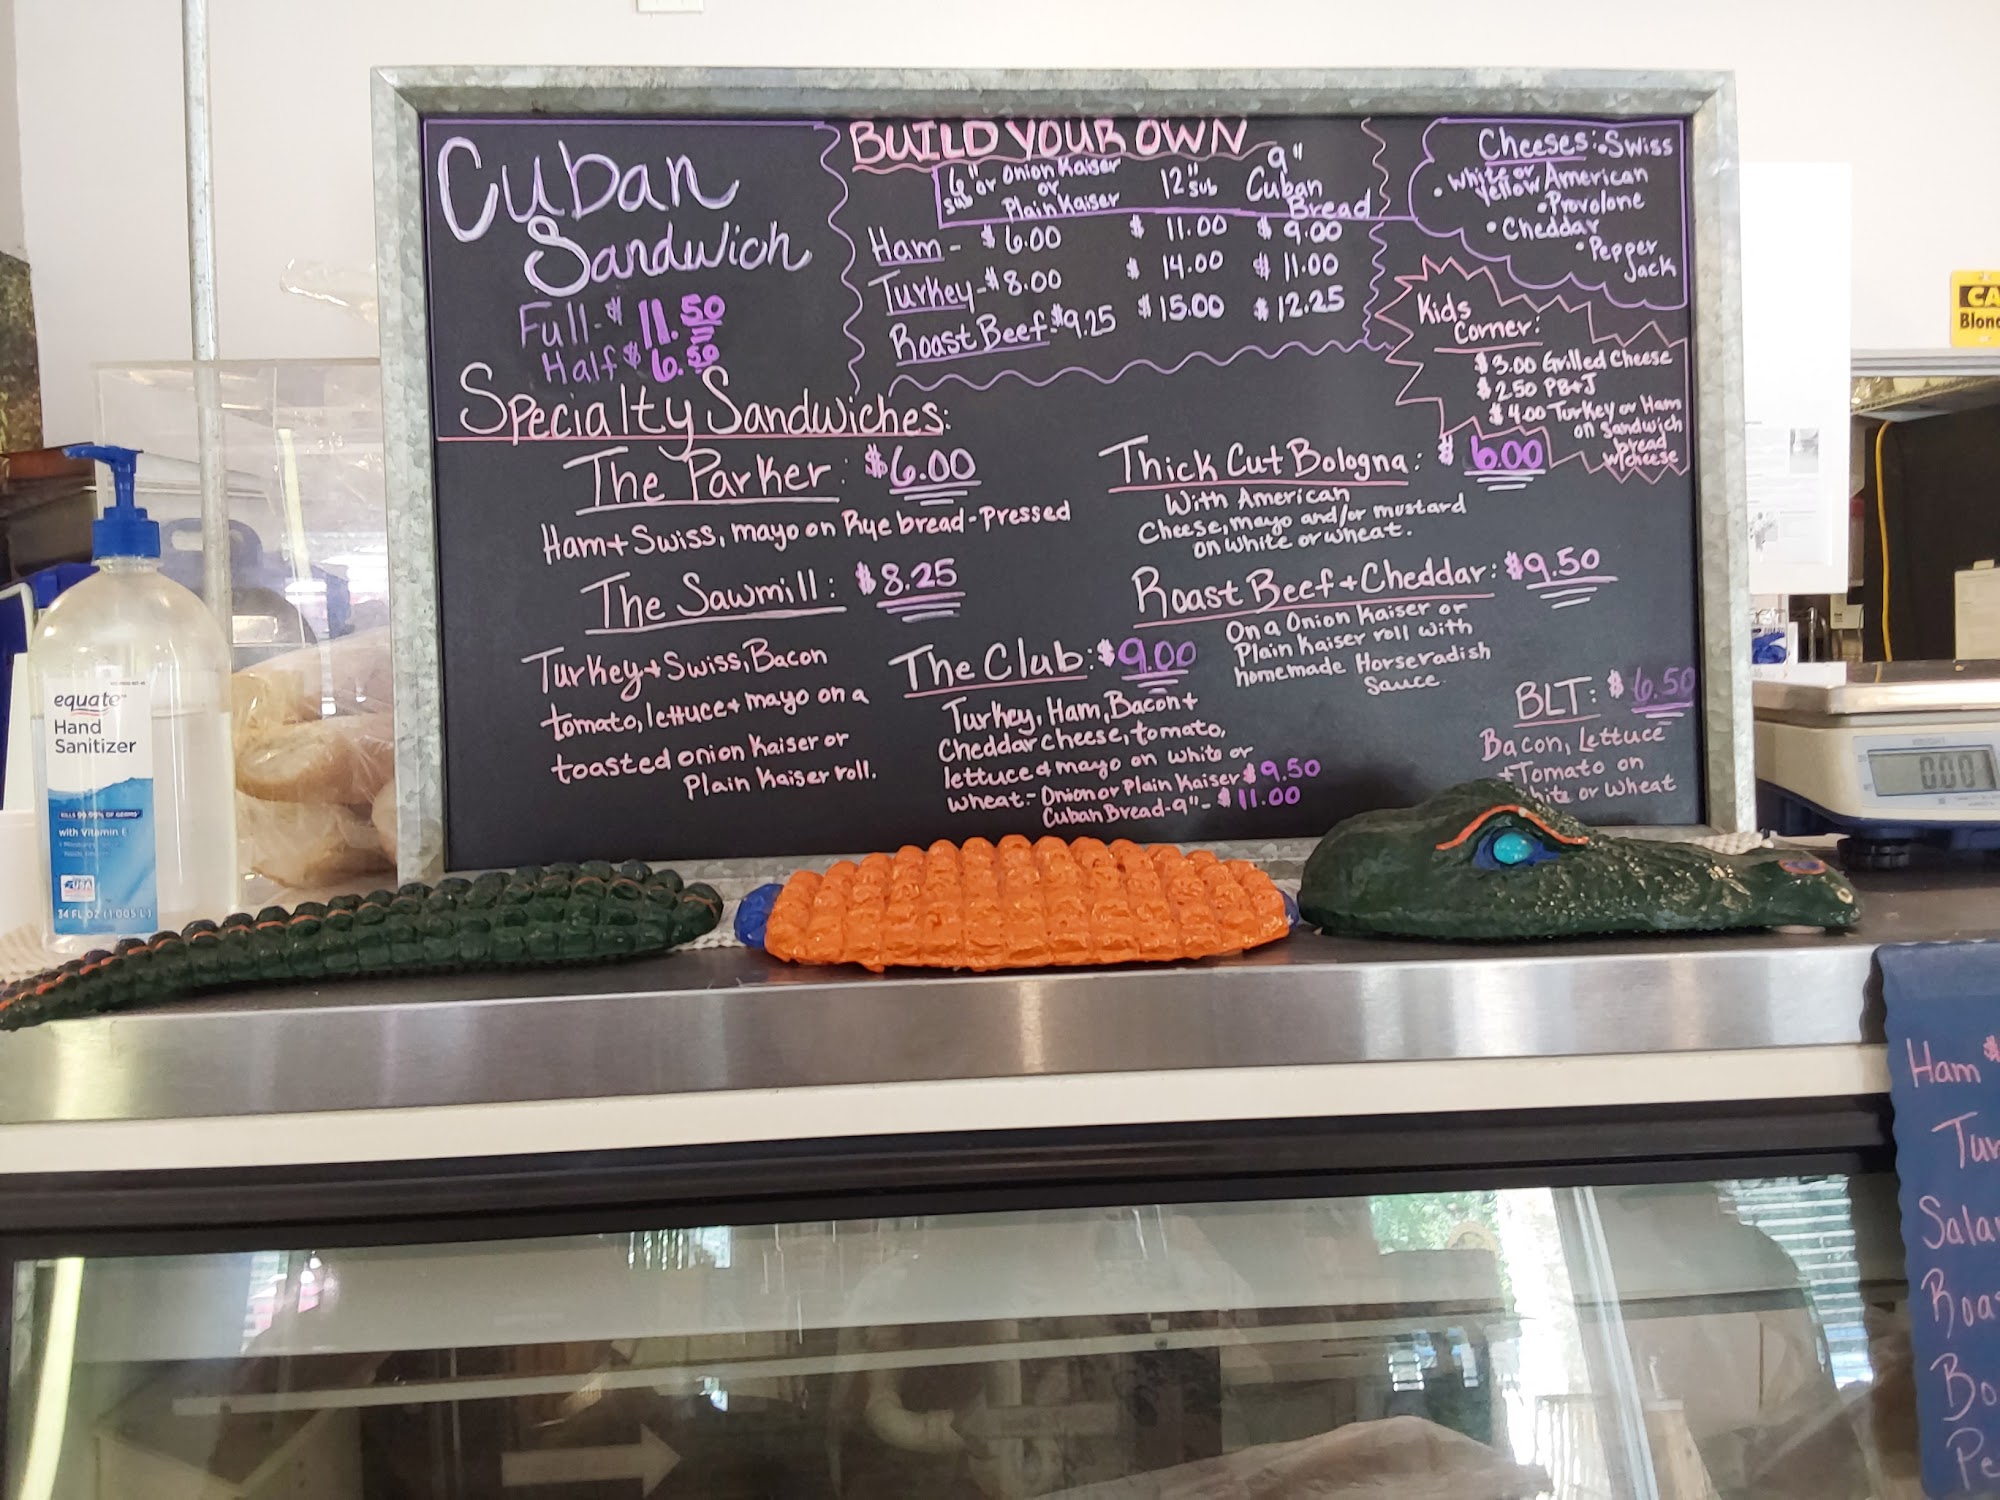 Cuban
Sandwich
Full-$ 11.50
Half $ 6.50
BUILD YOUR OWN
6" sub or Onion Kaiser or Plain Kaiser
12" sub
9" Cuban Bread
Ham - $ 6.00 $ 11.00 $ 9.00
Turkey-$8.00 $ 14.00 $ 11.00
Roast Beef-$9.25 $ 15.00 $ 12.25
Cheeses: •Swiss
• White or Yellow American
• Provolone
• Cheddar
• Pepper
Jack
Kids
Corner:
$3.00 Grilled Cheese
$2.50 PB+J
$4.00 Turkey or Ham
on Sandwich
bread
w/cheese
Specialty Sandwiches:
The Parker: $6.00
Ham + Swiss, mayo on Rye bread-Pressed
The Sawmill: $8.25
Turkey + Swiss, Bacon
tomato, lettuce + mayo on a
toasted onion Kaiser or
Plain Kaiser roll.
The Club: $9.00
Turkey, Ham, Bacon +
Cheddar cheese, tomato,
lettuce & mayo on white or
wheat.- Onion or Plain Kaiser $9.50
Cuban Bread-9"- $11.00
Thick Cut Bologna: $ 6.00
With American
Cheese, mayo and/or mustard
on white or wheat.
Roast Beef + Cheddar: $9.50
On a Onion Kaiser or
Plain Kaiser roll with
homemade Horseradish
Sauce.
BLT: $ 6.50
Bacon, Lettuce
+ Tomato on
White or Wheat
equate
Hand
Sanitizer
KILLS 99.99% OF GERMS
with Vitamin E
USA
34 FL OZ (1.005 L)
CA
Blond
0.00
Ham $
Tur
Sala
Roas
Bo
Pe